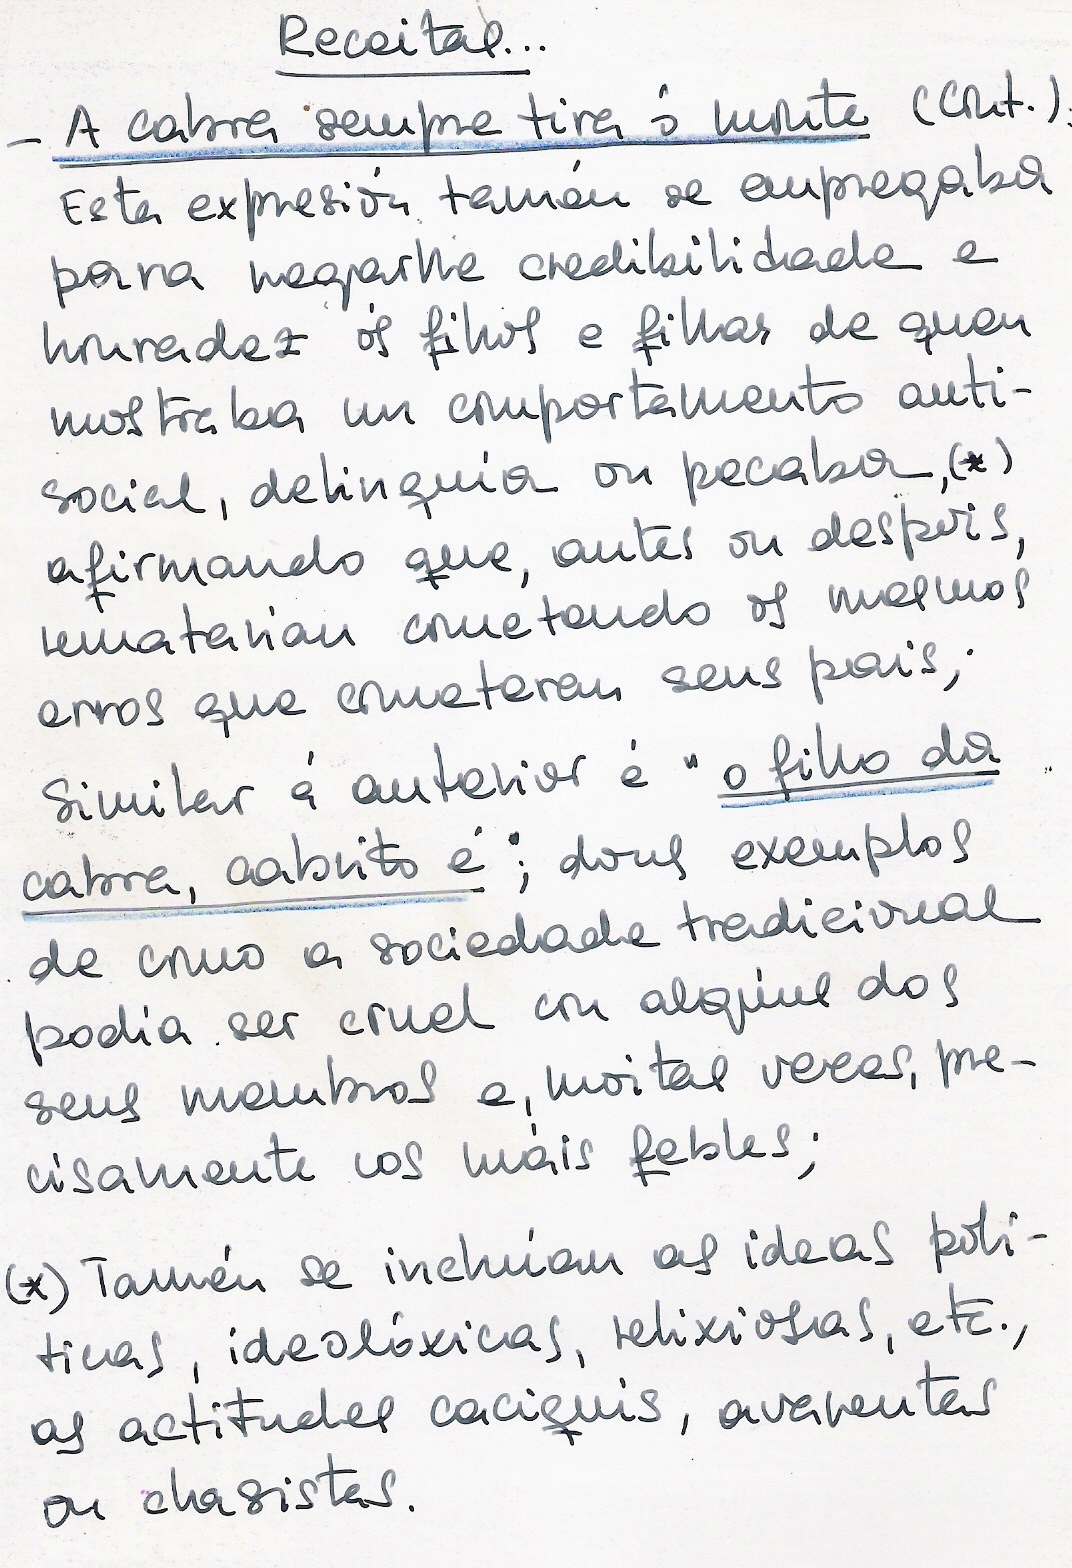 Receitas...
- A cabra sempre tira ó monte (cont.);
Esta expresión tamén se empregaba
para negarlle credibilidade e
honradez ós fillos e fillas de quen
mostraba un comportamento anti-
social, delinquía ou pecaba,(*)
afirmando que, antes ou despois,
rematarían cometendo os mesmos
erros que cometeran seus pais;
Similar á anterior é "o fillo da
cabra, cabrito é"; dous exemplos
de como a sociedade tradicional
podía ser cruel con algúns dos
seus membros e, moitas veces, pre-
cisamente cos máis febles;
(*) Tamén se incluían as ideas polí-
ticas, ideolóxicas, relixiosas, etc.,
as actitudes caciquís, avarentas
ou chasistas.